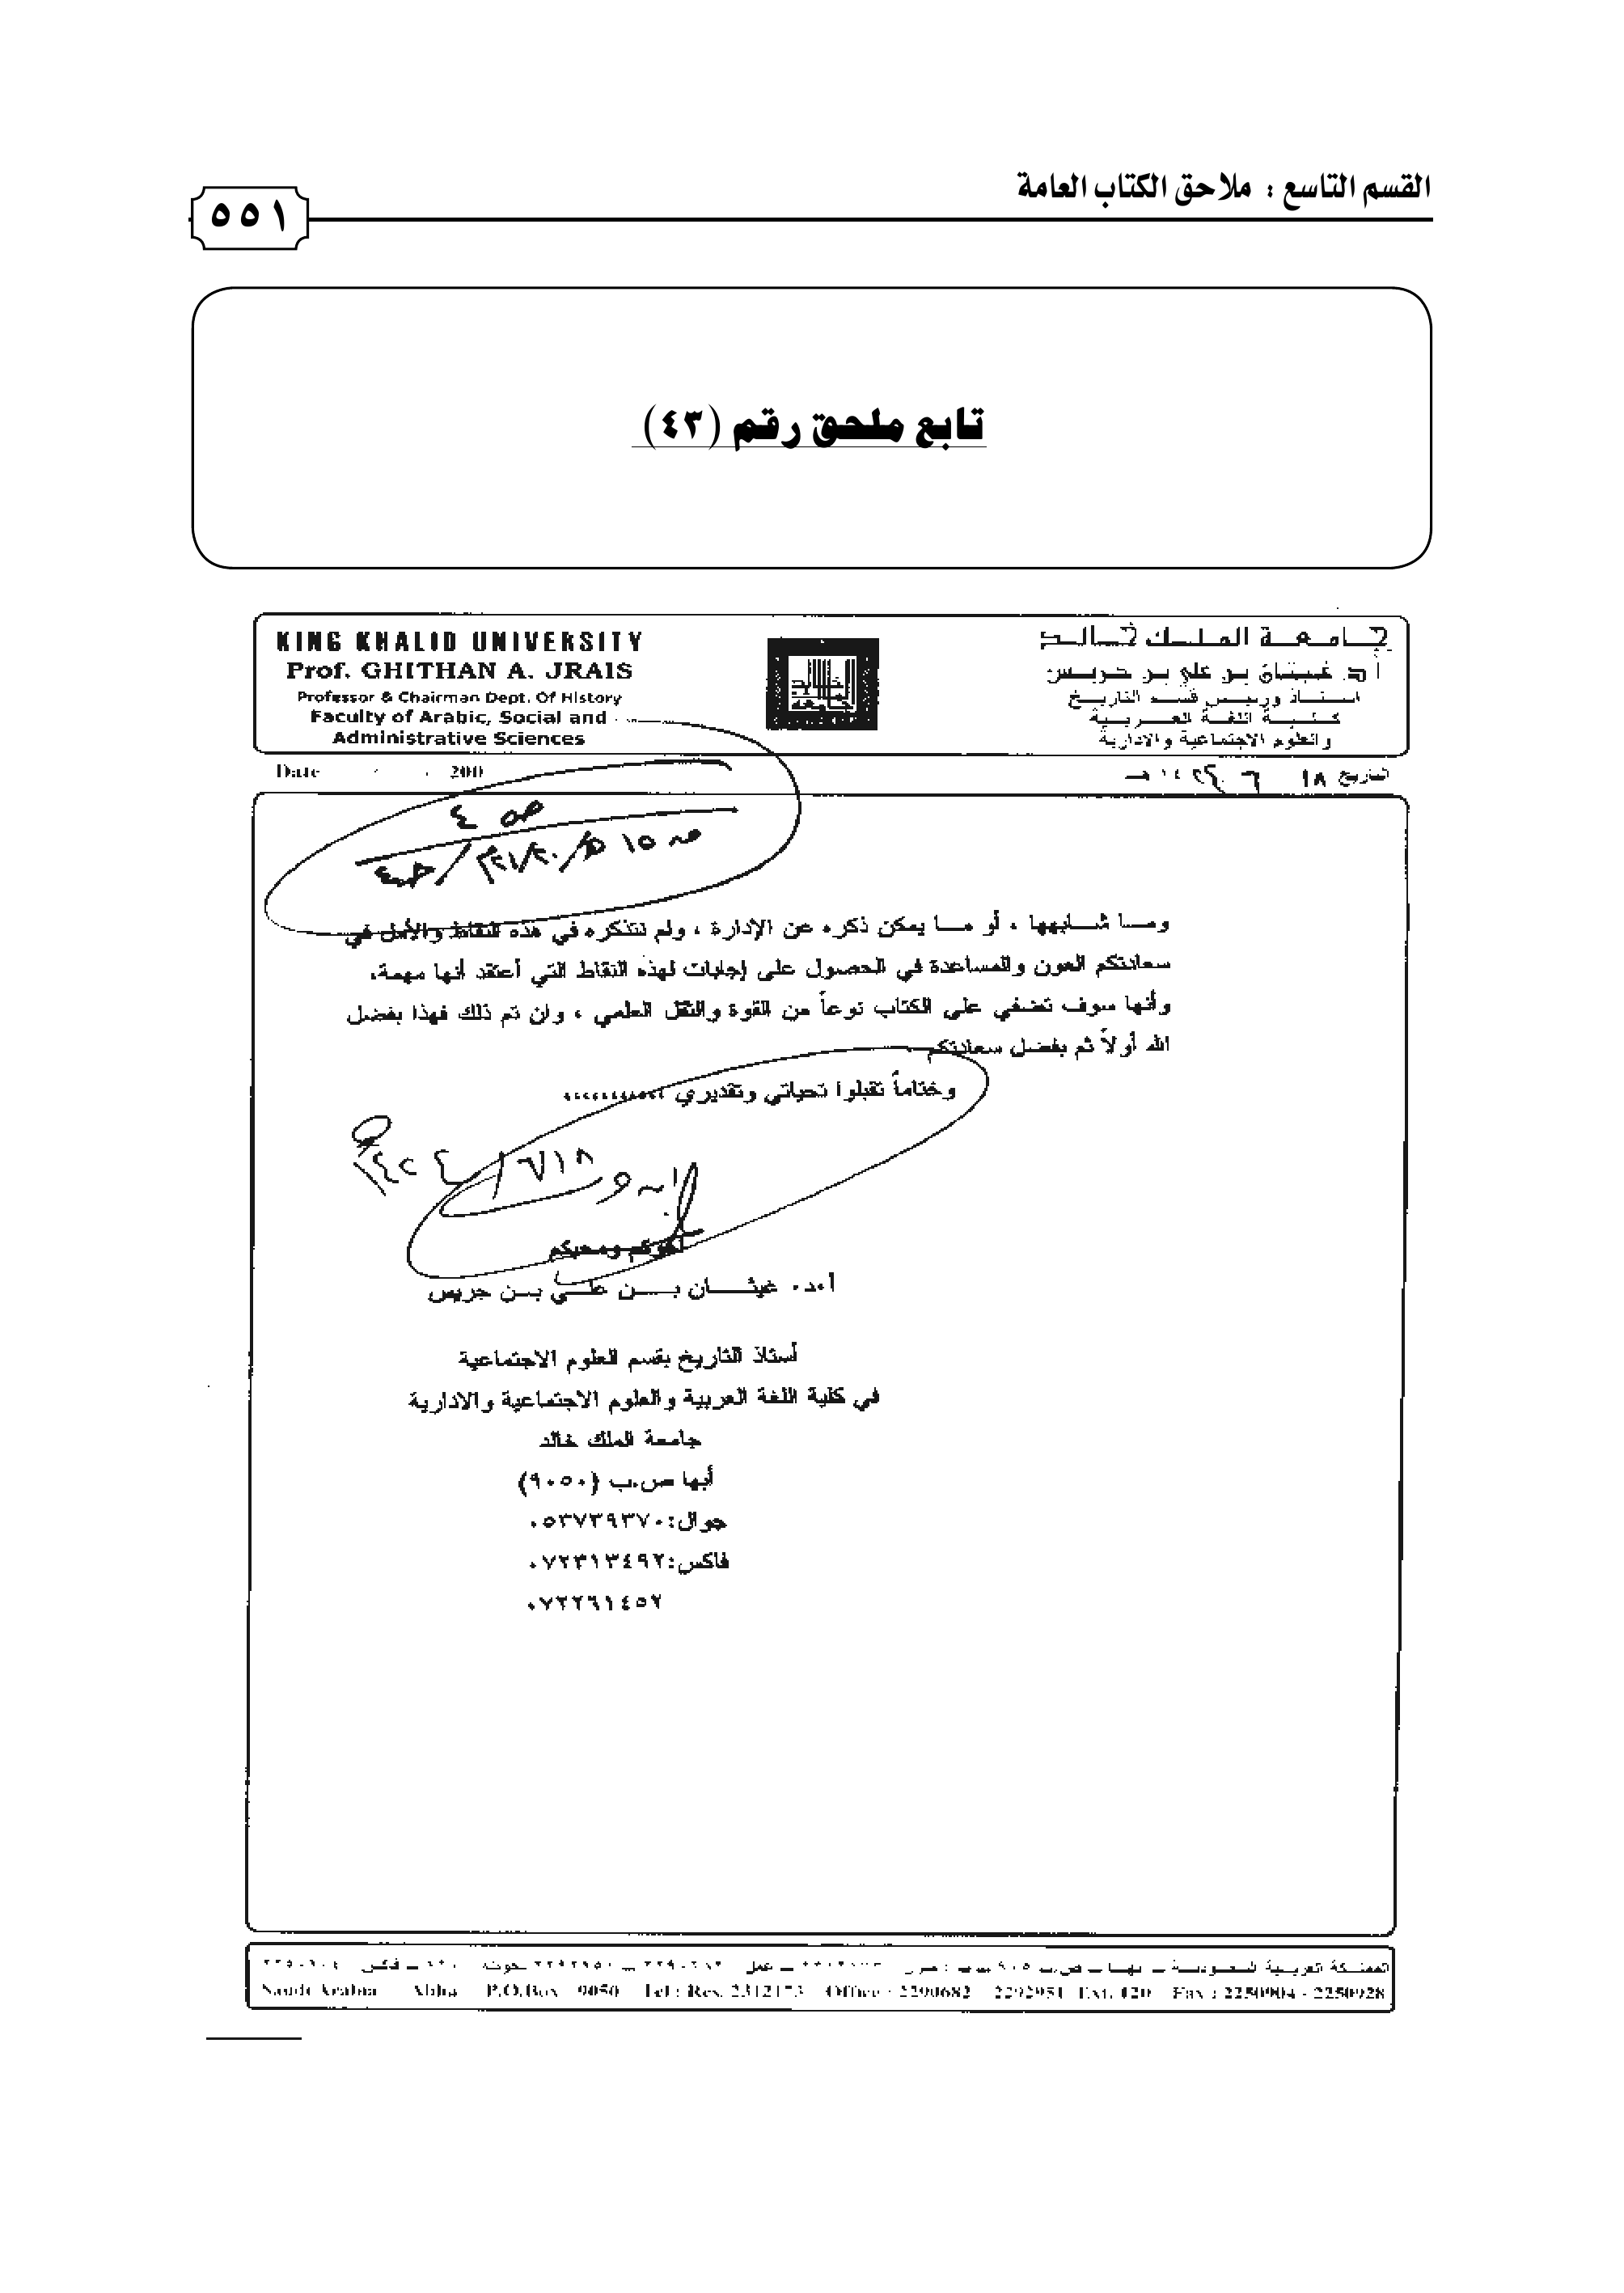 القسم التاسع : ملاحق الكتاب العامة
٥٥١
تابع ملحق رقم (٤٣)
KING KHALID UNIVERSITY
Prof. GHITHAN A. JRAIS
Professor & Chairman Dept. Of History
Faculty of Arabic, Social and
Administrative Sciences
جامعة الملك خالد
أ.د. غيثان بن علي بن جريس
أستاذ ورئيس قسم التاريخ
كلية اللغة العربية
والعلوم الاجتماعية والادارية
Date 200
التاريخ ١٨ ٦ ١٤ هـ
ص ٤
وما شابهها ، أو ما يمكن ذكره عن الإدارة ، ولم نتذكره في هذه النقاط والأمل في
سعادتكم العون والمساعدة في الحصول على إجابات لهذه النقاط التي أعتقد أنها مهمة،
وأنها سوف تضفي على الكتاب نوعاً من القوة والثقل العلمي ، وان تم ذلك فهذا بفضل
الله أولاً ثم بفضل سعادتكم
وختاماً تقبلوا تحياتي وتقديري ،،،،،،،،،،،
أخوكم ومحبكم
أ.د. غيثان بن علي بن جريس
أستاذ التاريخ بقسم العلوم الاجتماعية
في كلية اللغة العربية والعلوم الاجتماعية والادارية
جامعة الملك خالد
أبها ص.ب (٩٠٥٠)
جوال:٠٥٣٧٣٩٣٧٠
فاكس:٠٧٢٣١٣٤٩٢
٠٧٢٢٦١٤٥٢
المملكة العربية السعودية ـ أبها ـ ص.ب
Saudi Arabia Abha P.O.Box 9050 Tel : Res. 2312173 Office : 2290682 2292951 Ext. 120 Fax : 2250904 - 2250928